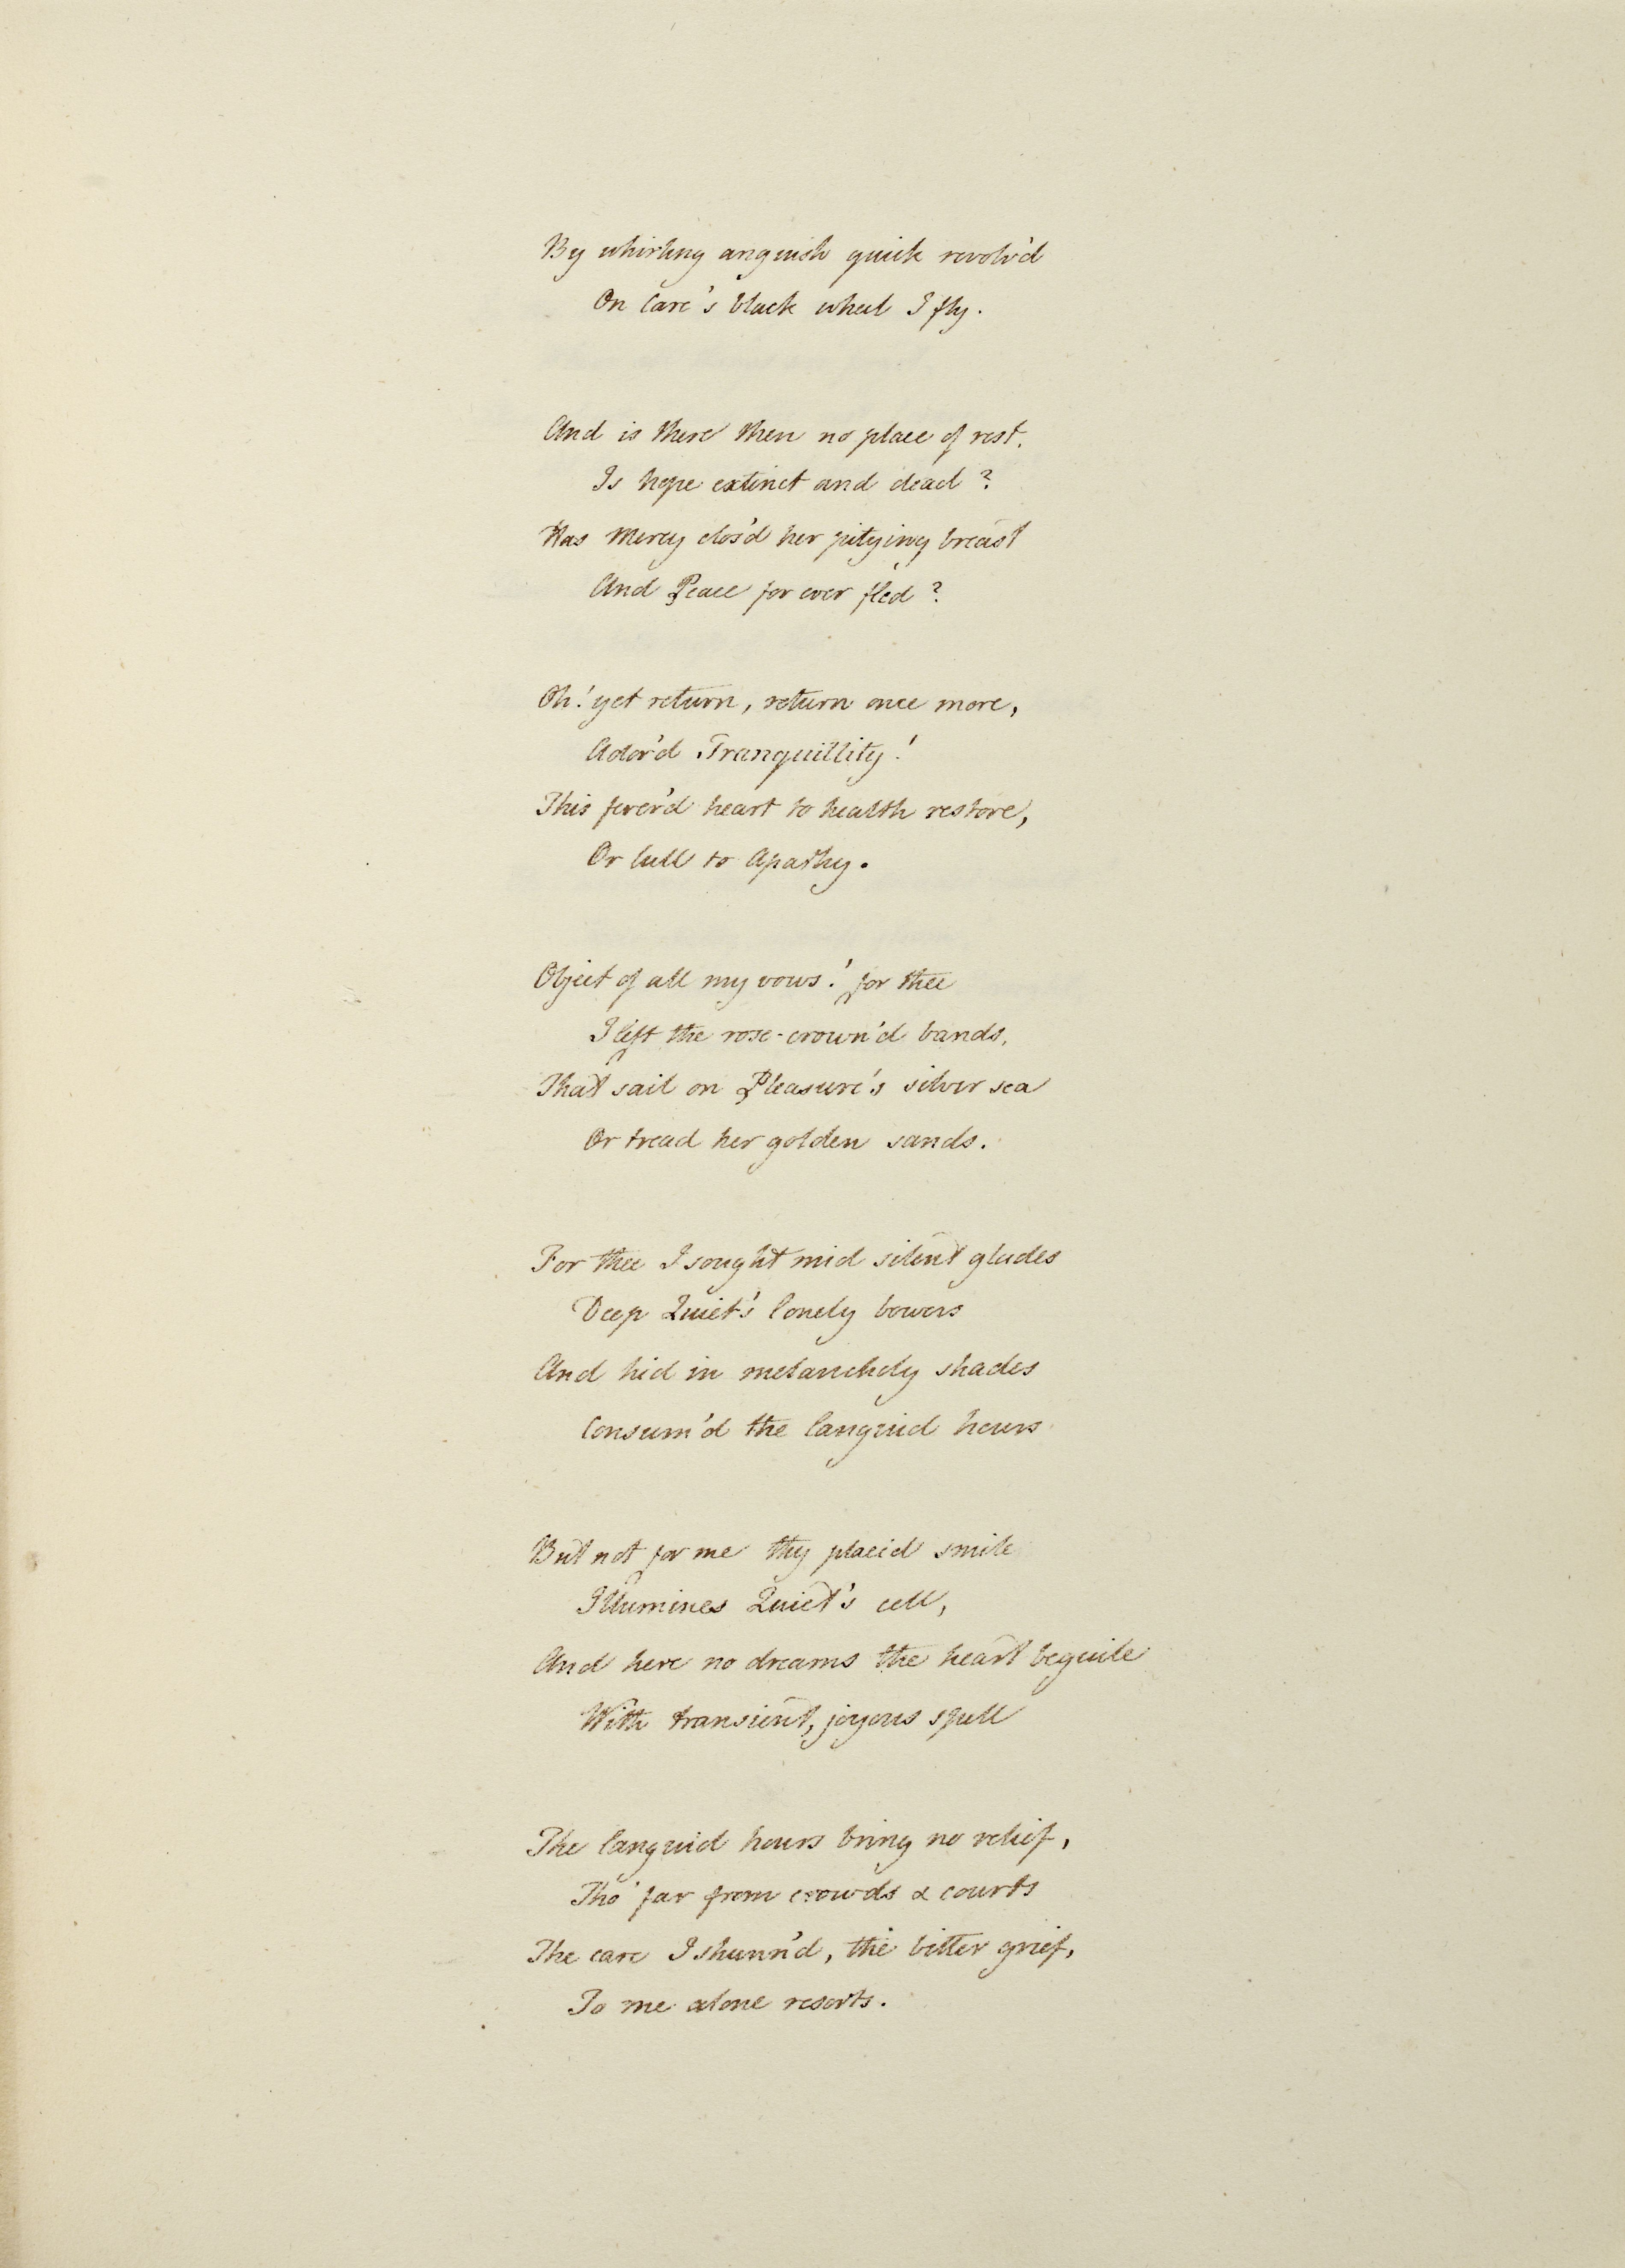 By whirling anguish quick revolv'd
On Care's black wheel I fly.
And is there then no place of rest.
Is hope extinct and dead?
Has Mercy clos'd her pitying breast
And Peace for ever fled?
Oh! yet return, return once more,
Ador'd Tranquillity!
This fever'd heart to health restore,
Or lull to Apathy.
Object of all my vows! for thee
I left the rose-crown'd bands,
That sail on Pleasure's silver sea
Or tread her golden sands.
For thee I sought mid silent glades
Deep Quiet's lonely bowers
And hid in melancholy shades
Consum'd the languid hours
But not for me thy placid smile
Illumines Quiet's cell,
And here no dreams the heart beguile
With transient, joyous spell
The languid hours bring no relief,
Tho' far from crowds & courts
The care I shunn'd, the bitter grief,
To me alone resorts.